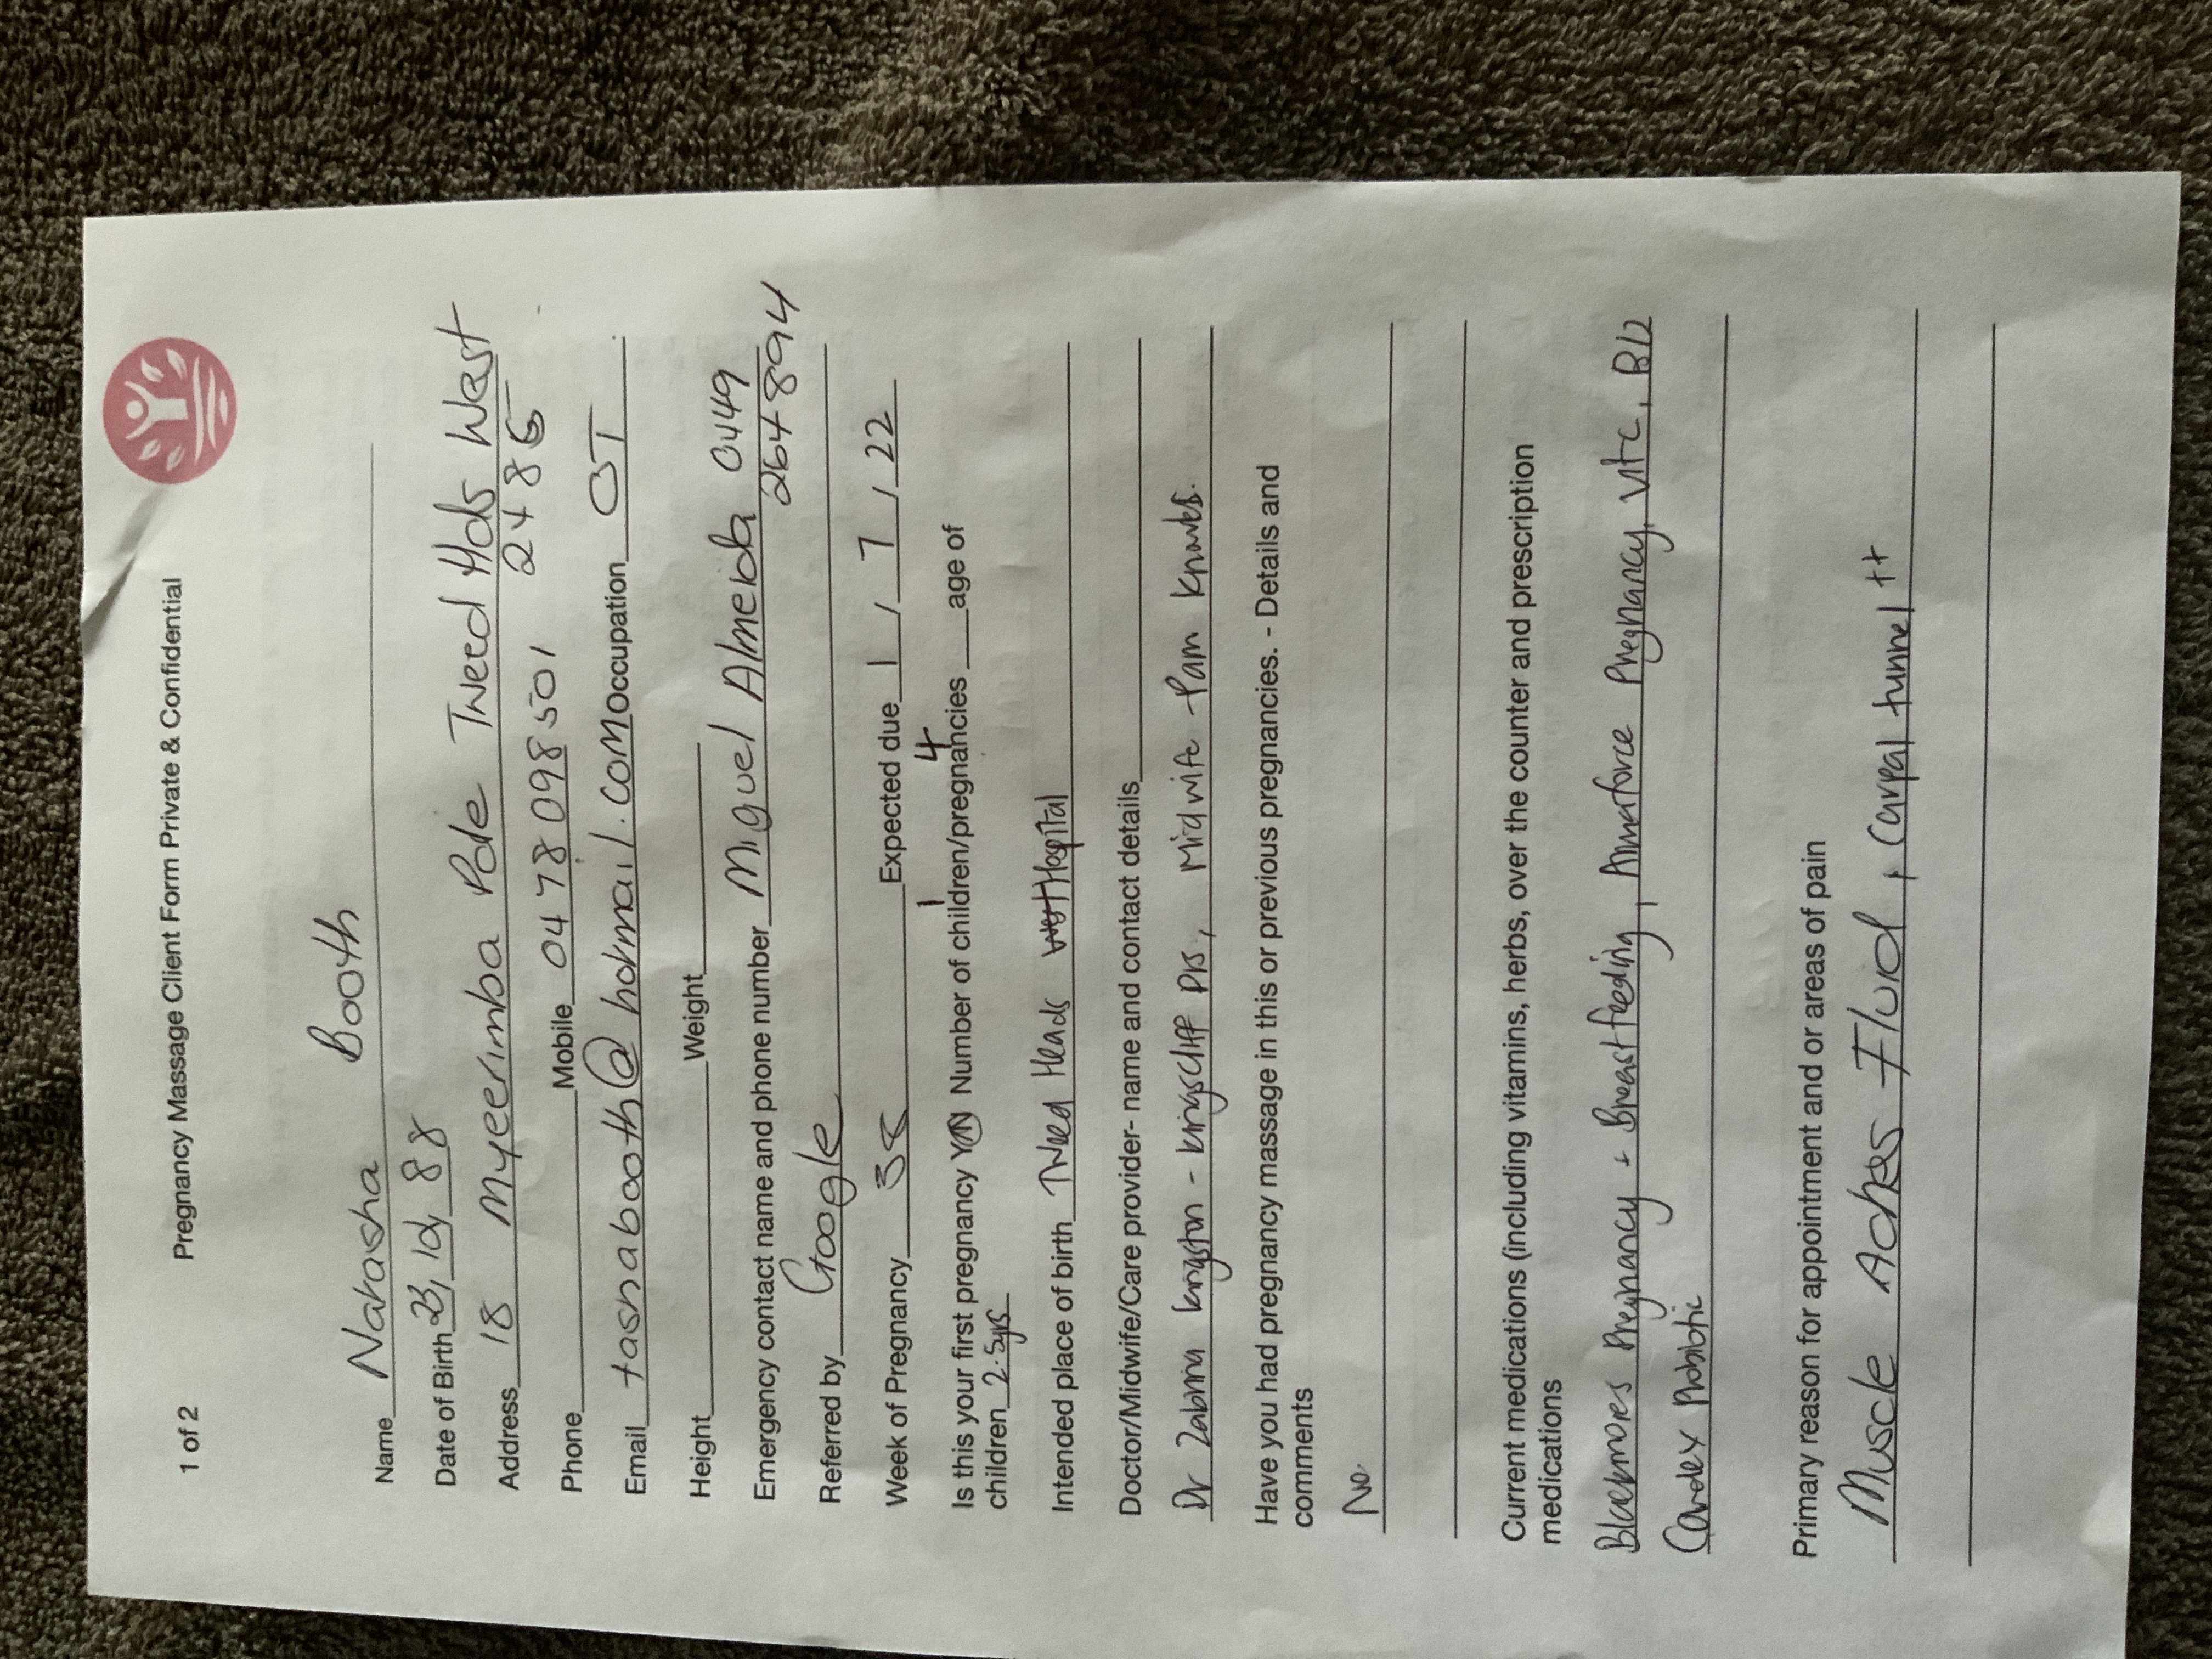 1 of 2 Pregnancy Massage Client Form Private & Confidential
Name Natasha Booth
Date of Birth 23, 10, 88
Address 18 Myeerimba Pde Tweed Hds West
2485
Phone Mobile 0478 098 501
Email tashabooth@hotmail.com Occupation OT
Height Weight
Emergency contact name and phone number Miguel Almeida 0449
264 894
Referred by Google
Week of Pregnancy 35 Expected due 1, 7, 22
1 4
Is this your first pregnancy Y/N Number of children/pregnancies age of
children 2.5yrs
Intended place of birth Tweed Heads Hospital
Doctor/Midwife/Care provider- name and contact details
Dr Kingston - Kingscliff Drs, Midwife - Pam
Have you had pregnancy massage in this or previous pregnancies. - Details and
comments
No.
Current medications (including vitamins, herbs, over the counter and prescription
medications
Blackmores Pregnancy + Breastfeeding, Pregnancy, Vit C, B12
Probiotic
Primary reason for appointment and or areas of pain
Muscle Aches Fluid, Carpal tunnel ++